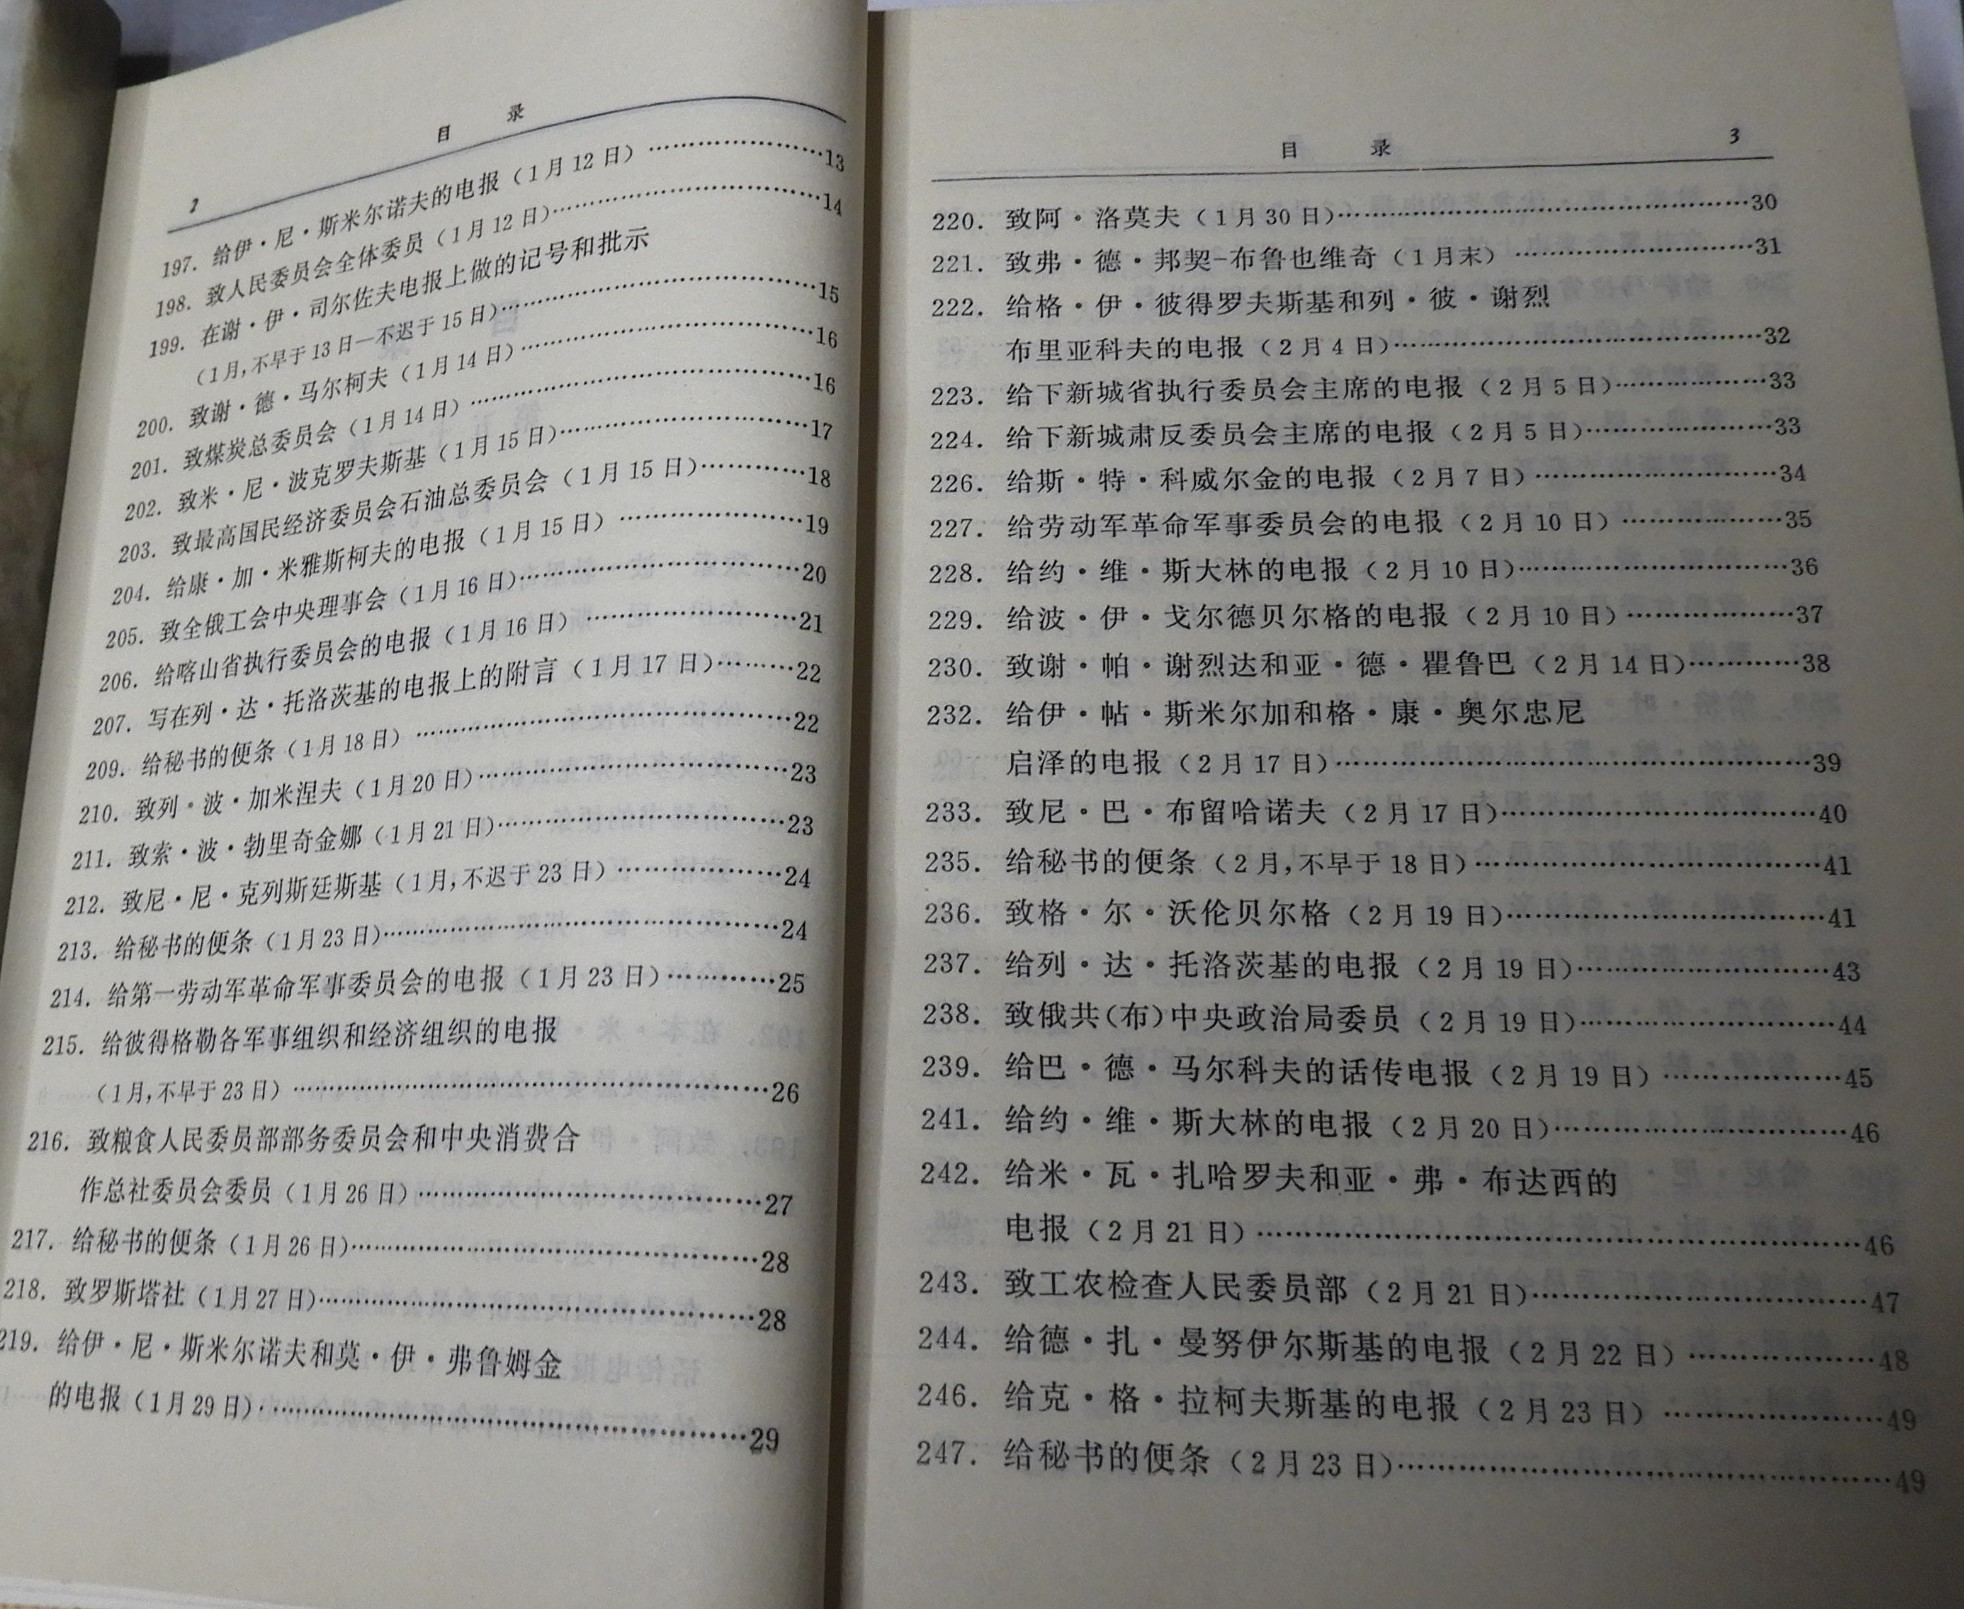 2 目 录
197. 给伊·尼·斯米尔诺夫的电报（1月12日）……………………13
198. 致人民委员会全体委员（1月12日）……………………14
199. 在谢·伊·司尔佐夫电报上做的记号和批示
（1月,不早于13日—不迟于15日）……………………15
200. 致谢·德·马尔柯夫（1月14日）……………………16
201. 致煤炭总委员会（1月14日）……………………16
202. 致米·尼·波克罗夫斯基（1月15日）……………………17
203. 致最高国民经济委员会石油总委员会（1月15日）…………18
204. 给康·加·米雅斯柯夫的电报（1月15日）……………………19
205. 致全俄工会中央理事会（1月16日）……………………20
206. 给喀山省执行委员会的电报（1月16日）……………………21
207. 写在列·达·托洛茨基的电报上的附言（1月17日）………22
209. 给秘书的便条（1月18日）……………………22
210. 致列·波·加米涅夫（1月20日）……………………23
211. 致索·波·勃里奇金娜（1月21日）……………………23
212. 致尼·尼·克列斯廷斯基（1月,不迟于23日）………………24
213. 给秘书的便条（1月23日）……………………24
214. 给第一劳动军革命军事委员会的电报（1月23日）…………25
215. 给彼得格勒各军事组织和经济组织的电报
（1月,不早于23日）……………………26
216. 致粮食人民委员部部务委员会和中央消费合
作总社委员会委员（1月26日）……………………27
217. 给秘书的便条（1月26日）……………………28
218. 致罗斯塔社（1月27日）……………………28
219. 给伊·尼·斯米尔诺夫和莫·伊·弗鲁姆金
的电报（1月29日）……………………29
目 录 3
220. 致阿·洛莫夫（1月30日）……………………30
221. 致弗·德·邦契-布鲁也维奇（1月末）……………………31
222. 给格·伊·彼得罗夫斯基和列·彼·谢烈
布里亚科夫的电报（2月4日）……………………32
223. 给下新城省执行委员会主席的电报（2月5日）………………33
224. 给下新城肃反委员会主席的电报（2月5日）………………33
226. 给斯·特·科威尔金的电报（2月7日）……………………34
227. 给劳动军革命军事委员会的电报（2月10日）………………35
228. 给约·维·斯大林的电报（2月10日）……………………36
229. 给波·伊·戈尔德贝尔格的电报（2月10日）………………37
230. 致谢·帕·谢烈达和亚·德·瞿鲁巴（2月14日）…………38
232. 给伊·帖·斯米尔加和格·康·奥尔忠尼
启泽的电报（2月17日）……………………39
233. 致尼·巴·布留哈诺夫（2月17日）……………………40
235. 给秘书的便条（2月,不早于18日）……………………41
236. 致格·尔·沃伦贝尔格（2月19日）……………………41
237. 给列·达·托洛茨基的电报（2月19日）……………………43
238. 致俄共(布)中央政治局委员（2月19日）……………………44
239. 给巴·德·马尔科夫的话传电报（2月19日）………………45
241. 给约·维·斯大林的电报（2月20日）……………………46
242. 给米·瓦·扎哈罗夫和亚·弗·布达西的
电报（2月21日）……………………46
243. 致工农检查人民委员部（2月21日）……………………47
244. 给德·扎·曼努伊尔斯基的电报（2月22日）………………48
246. 给克·格·拉柯夫斯基的电报（2月23日）……………………49
247. 给秘书的便条（2月23日）……………………49